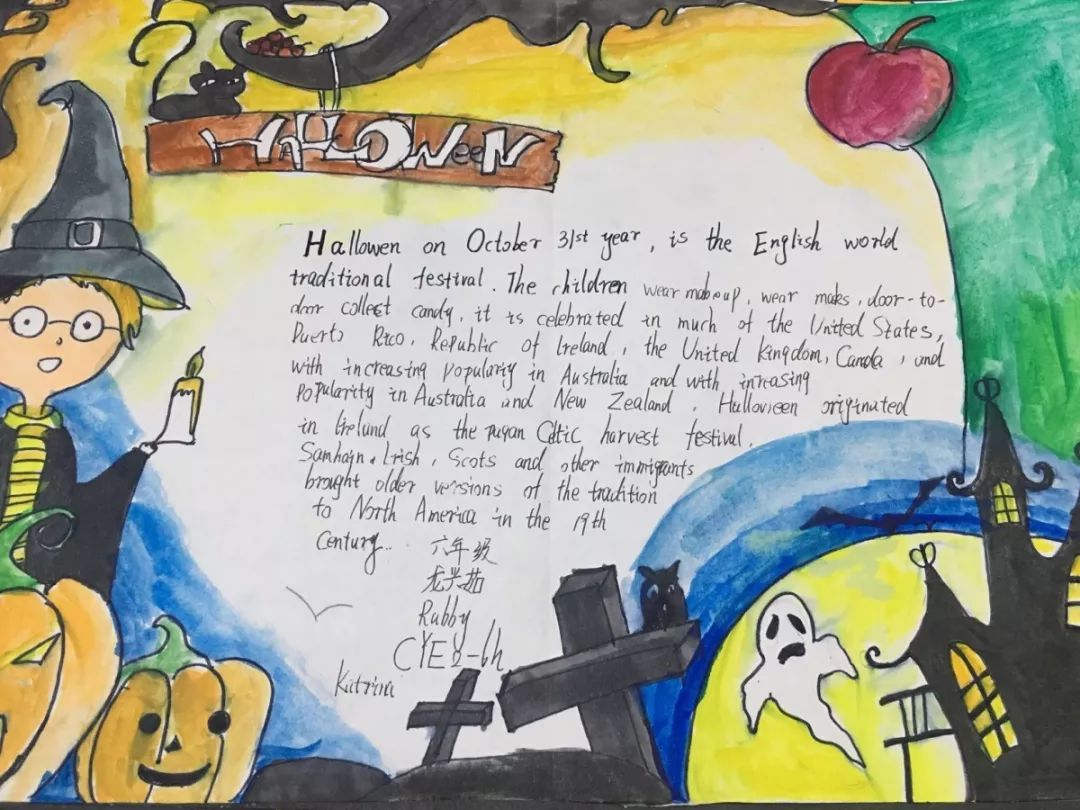 HALLOWeeN
Hallowen on October 31st year, is the English world
traditional festival. The children wear makeup, wear maks, door-to-
door collect candy, it is celebrated in much of the United States,
Puerto Rico, Republic of Ireland, the United kingdom, Canda, and
with increasing popularity in Australia and with incrasing
Popularity in Australia and New Zealand. Halloween originated
in Ireland as the pagan Celtic harvest festival.
Samhain. Irish, Scots and other immigrants
brought older versions of the tradition
to North America in the 19th
Century..
六年级
Rabby
Katrina